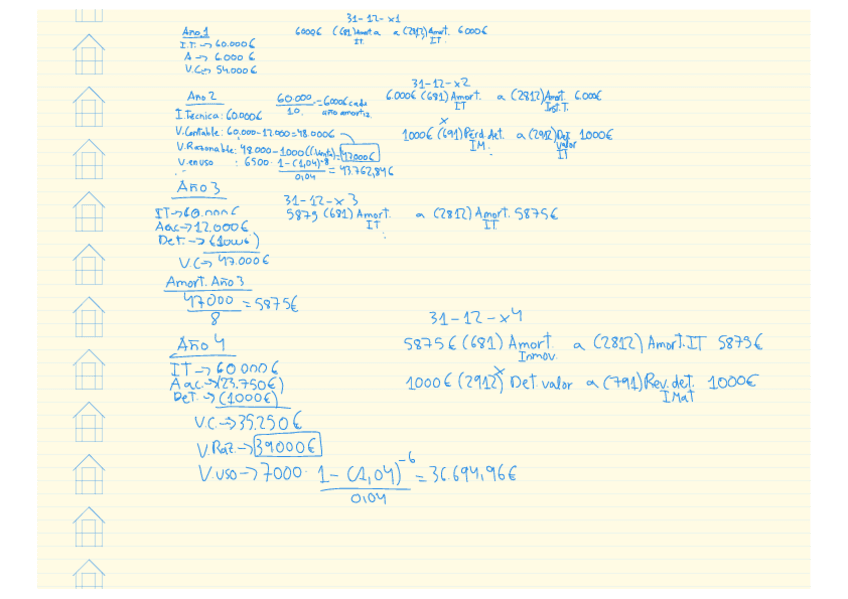 31-12-x1
Año 1
6000€ (681) Amort a a (2812) Amort. 6000€
IT. IT.
I.T. → 60.000€
A → 6.000 €
V.C → 54.000€
31-12-x2
Año 2
60.000 = 6000€ cada
10 año amortiz.
6.000€ (681) Amort. a (2812) Amort. 6.000€
IT Inst.T.
I.Tecnica: 60.000€
V.Contable: 60.000-12.000=48.000€
x
1000€ (691) Pérd Det. a (2912) Det 1000€
IM. valor
IT
V.Razonable: 48.000-1000 = 47000€
V.en uso : 6500. 1-(1,04)-8 = 43.762,84€
0,04
Año 3
31-12-x3
IT → 60.000€
5875 (681) Amort. a (2812) Amort. 5875€
IT IT
A ac → 12.000€
Det. → (1000€)
V.C → 47.000€
Amort. Año 3
47000 = 5875€
8
31-12-x4
Año 4
5875€ (681) Amort. a (2812) Amort. IT 5875€
Inmov.
IT → 60.000€
A ac. → (23.750€)
x
1000€ (2912) Det. valor a (791) Rev. det. 1000€
I Mat
Det. → (1000€)
V.C → 35.250€
V.Raz. → 39000€
V.uso → 7000. 1-(1,04)-6 = 36.694,96€
0,04